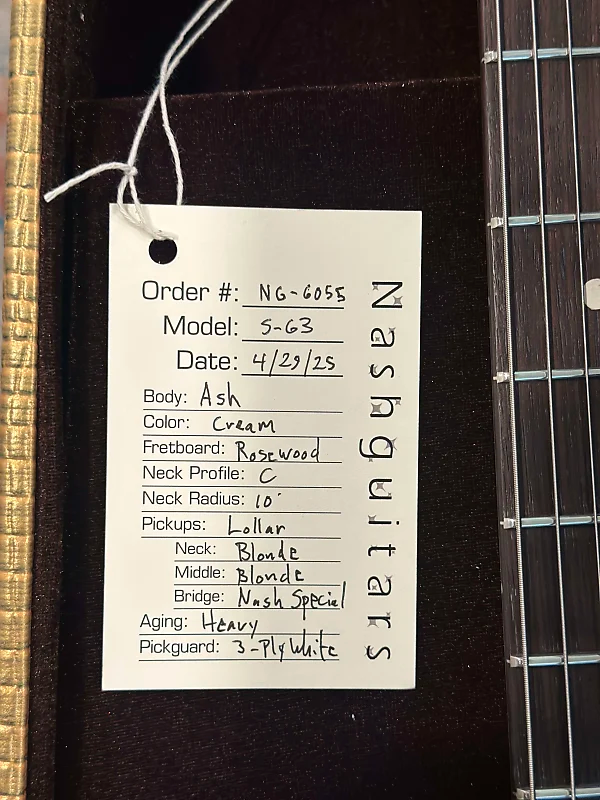 Order #: NG-6055
Model: S-63
Date: 4/29/25
Body: Ash
Color: Cream
Fretboard: Rosewood
Neck Profile: C
Neck Radius: 10"
Pickups: Lollar
Neck: Blonde
Middle: Blonde
Bridge: Nash Special
Aging: Heavy
Pickguard: 3-Ply White
Nashguitars